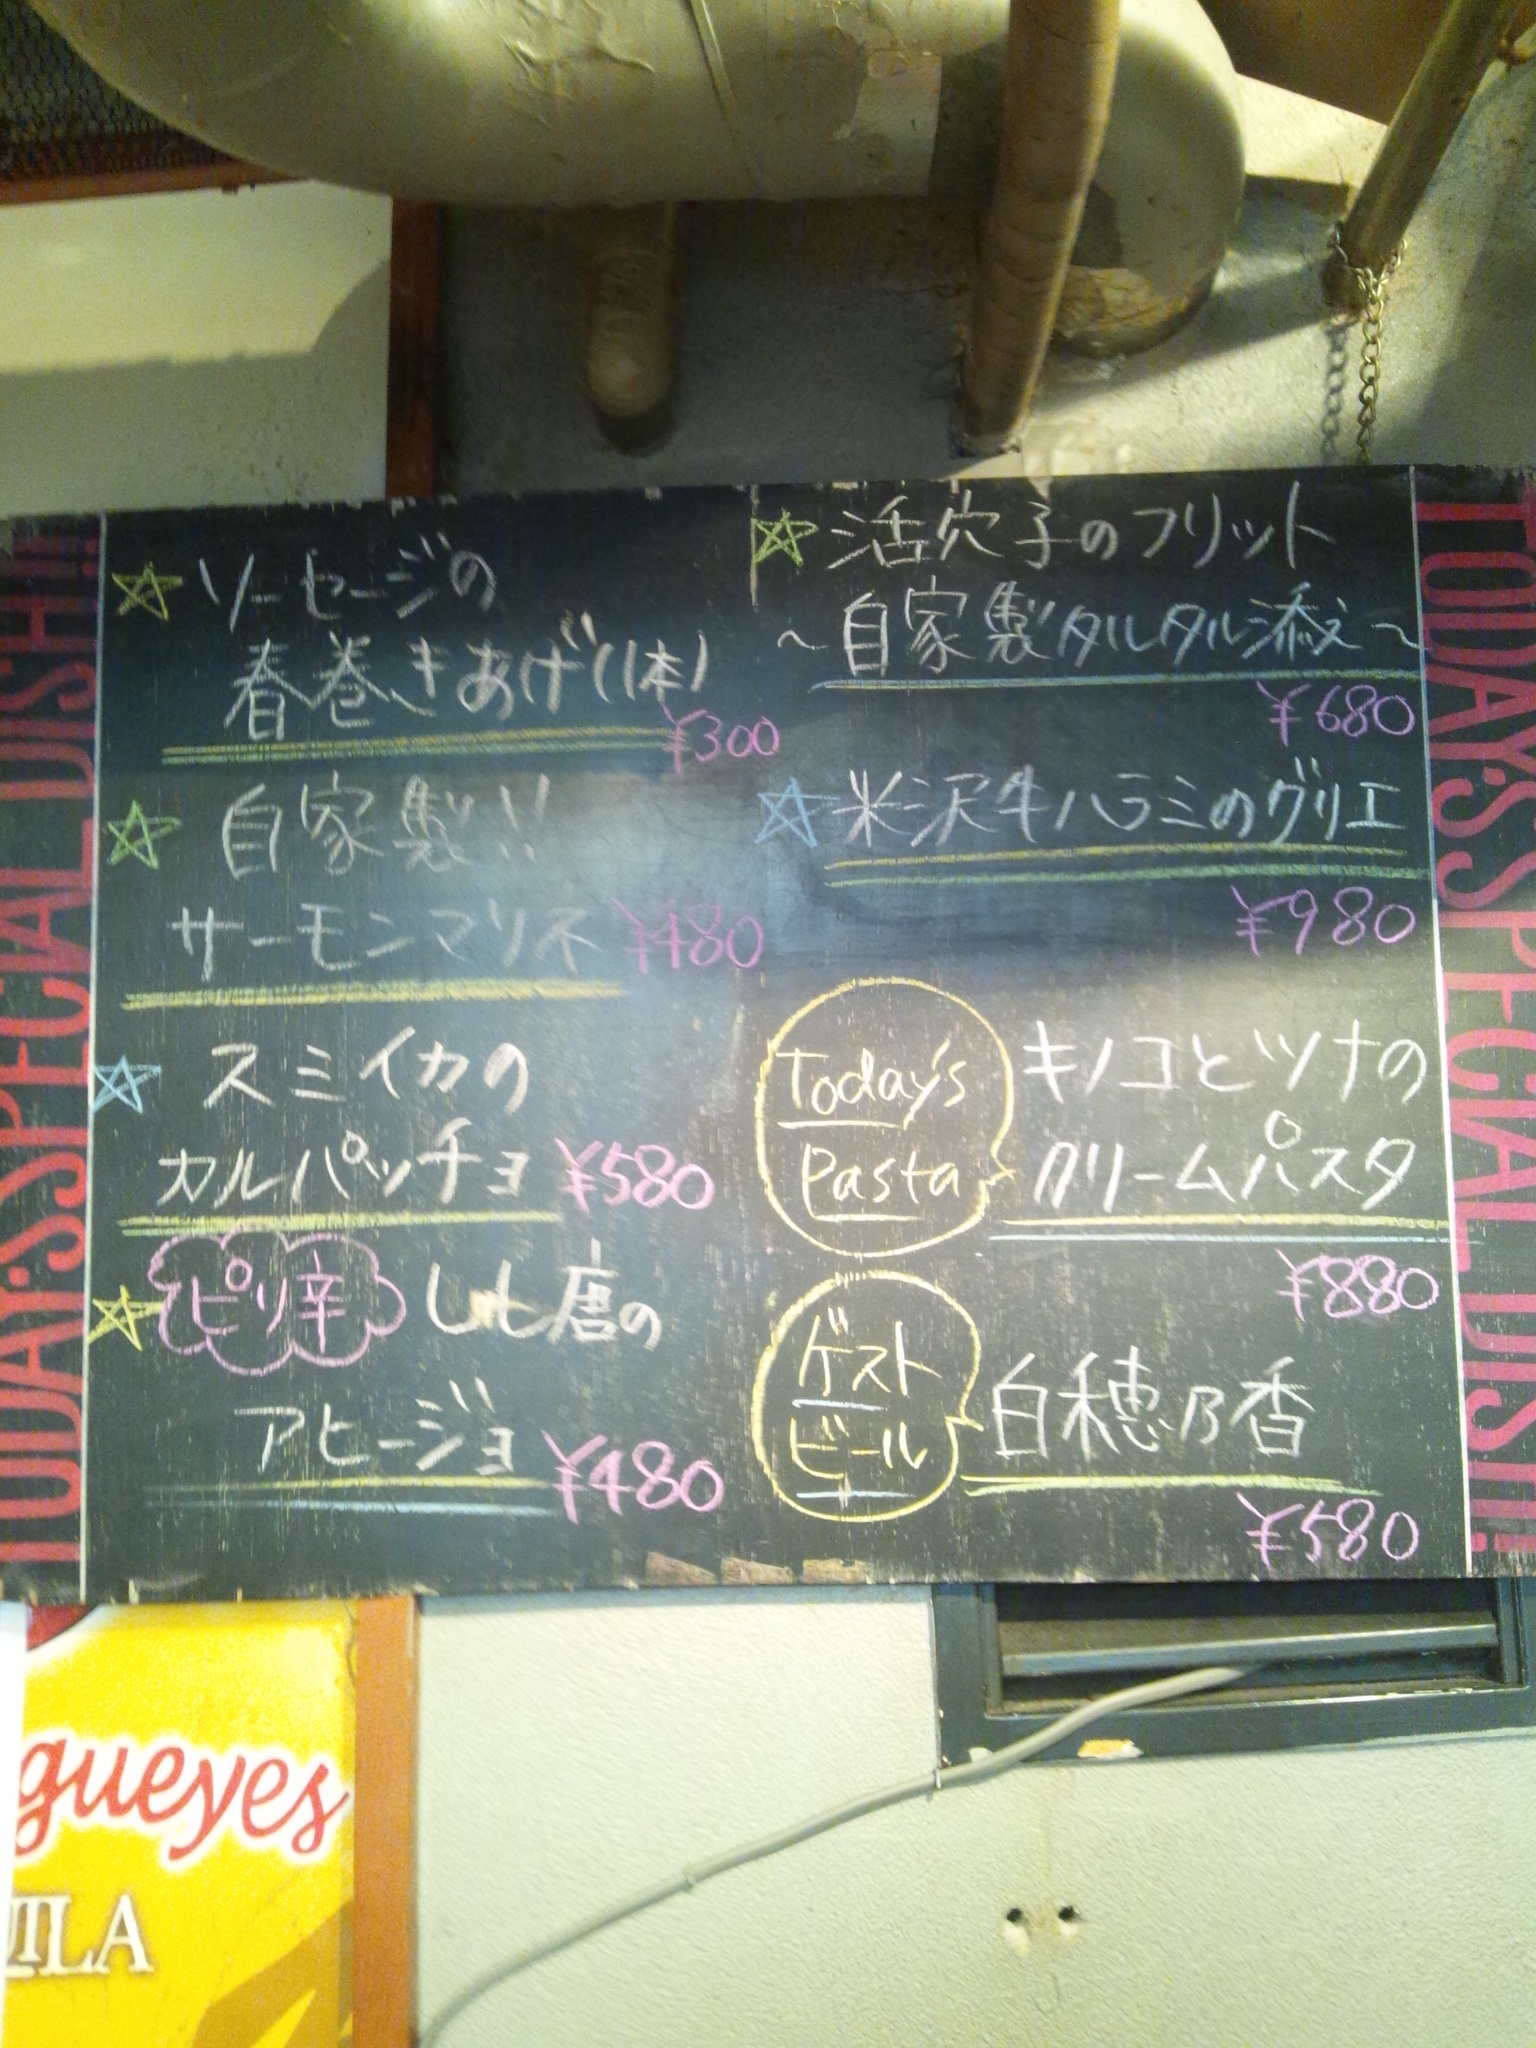 TODAY'S SPECIAL DISH!!
ソーセージの
春巻きあげ(1本)
¥300
自家製!!
サーモンマリネ ¥480
スミイカの
カルパッチョ ¥580
ピリ辛 しし唐の
アヒージョ ¥480
活穴子のフリット
~自家製タルタル添え~
¥680
米沢牛ハラミのグリエ
¥980
Today's
Pasta
キノコとツナの
クリームパスタ
¥880
ゲスト
ビール
白穂乃香
¥580
TODAY'S SPECIAL DISH!!
gueyes
UILA